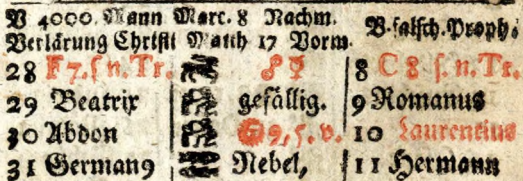 V 4000. Mann Marc. 8 Nachm.
Verklärung Christi Matth 17 Vorm.
V. falsch. Proph.
28 F 7. s. n. Tr. ☍ ♀ 8 C 8 s. n. Tr.
29 Beatrix gefällig. 9 Romanus
30 Abdon 9, 5. v. 10 Laurentius
31 German9 Nebel, 11 Hermann